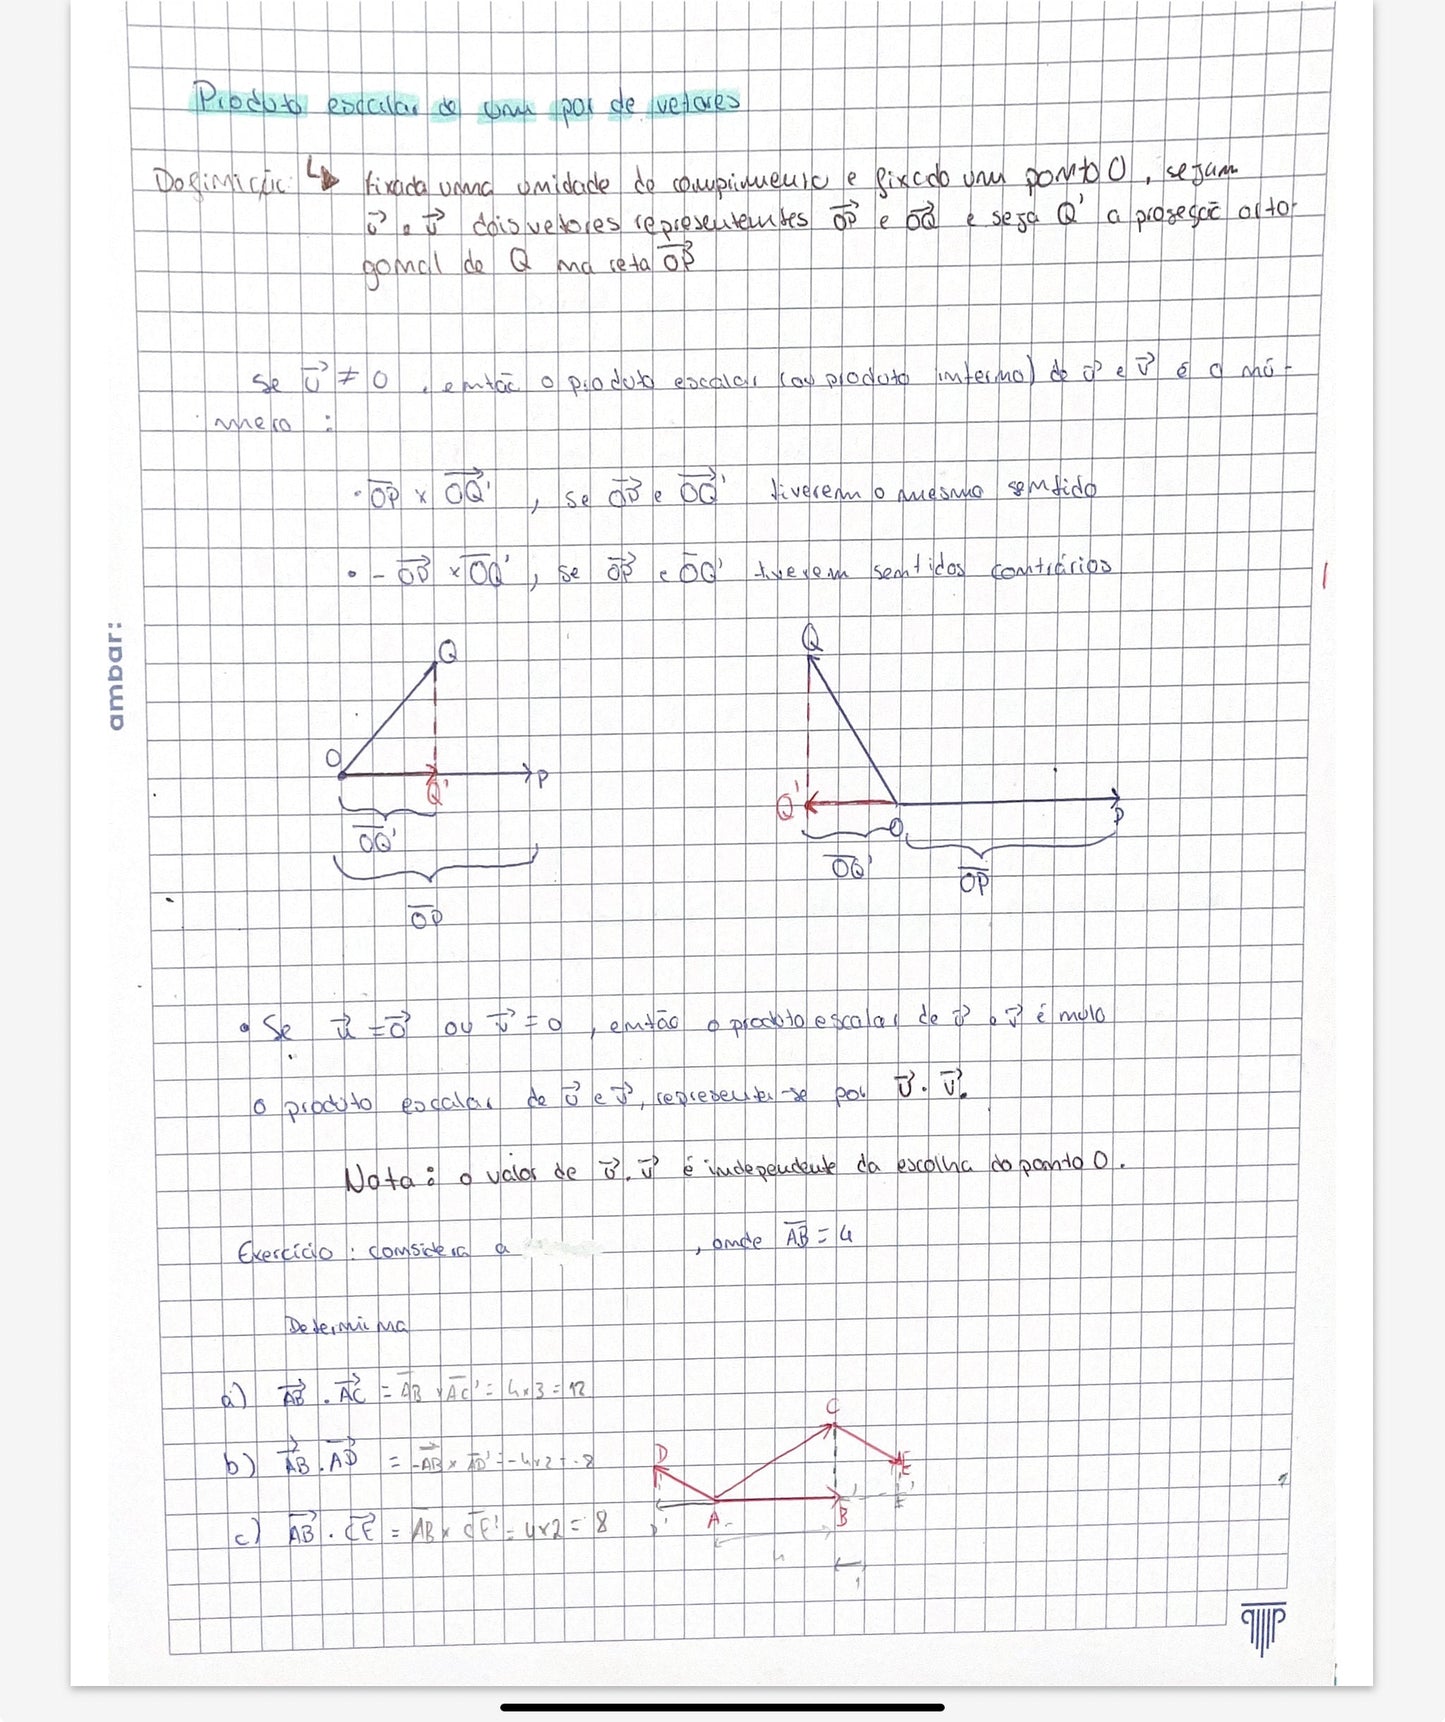 Produto escalar de um par de vetores
Definição: ↳ fixada uma unidade de comprimento e fixado um ponto O, sejam
u⃗ e v⃗ dois vetores representantes OP⃗ e OQ⃗ e seja Q' a projeção orto-
gonal de Q na reta OP⃗
Se u⃗ ≠ 0, então o produto escalar (ou produto interno) de u⃗ e v⃗ é o nú-
mero :
• OP̅ × OQ'⃗ , se OP⃗ e OQ⃗' tiverem o mesmo sentido
• - OP⃗ × OQ̅' , se OP⃗ e OQ̅' tiverem sentidos contrários
ambar:
Q
O
Q'
P
OQ̅'
OP̅
Q
Q'
O
P
OQ̅'
OP̅
• Se u⃗ = 0⃗ ou v⃗ = 0 , então o produto escalar de u⃗ e v⃗ é nulo
O produto escalar de u⃗ e v⃗, representa-se por u⃗ . v⃗.
Nota: o valor de u⃗ . v⃗ é independente da escolha do ponto O.
Exercício : considera a , onde AB̅ = 4
Determina
a) AB⃗ . AC⃗ = AB̅ × AC̅' = 4×3 = 12
b) AB⃗ . AD⃗ = -AB⃗ × AD̅' = -4×2 = -8
c) AB⃗ . CE⃗ = AB̅ × CE̅' = 4×2 = 8
C
D
E
A
B